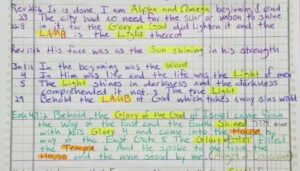 Rev 21:6 It is done. I am Alpha and Omega beginning & end
23 The city had no need of the sun or moon to shine
in it: for the Glory of God did lighten it and the
LAMB is the Light thereof
Rev 1:16 His face was as the Sun shining in his strength
Jn 1:1 In the beginning was the Word
4 In Him was life and the life was the Light of men
5 The Light shines in darkness and the darkness
comprehended it not. 9 The true Light
29 Behold the LAMB of God which takes away sins world
Ezk 43:2 Behold the Glory of the God of Israel came from
the way of the East and the Earth shined
with His Glory 4 and came into the House by
way of the East Gate 5 The Glory of filled
the Temple 6 And He spoke to me from the
House and the man stood by me